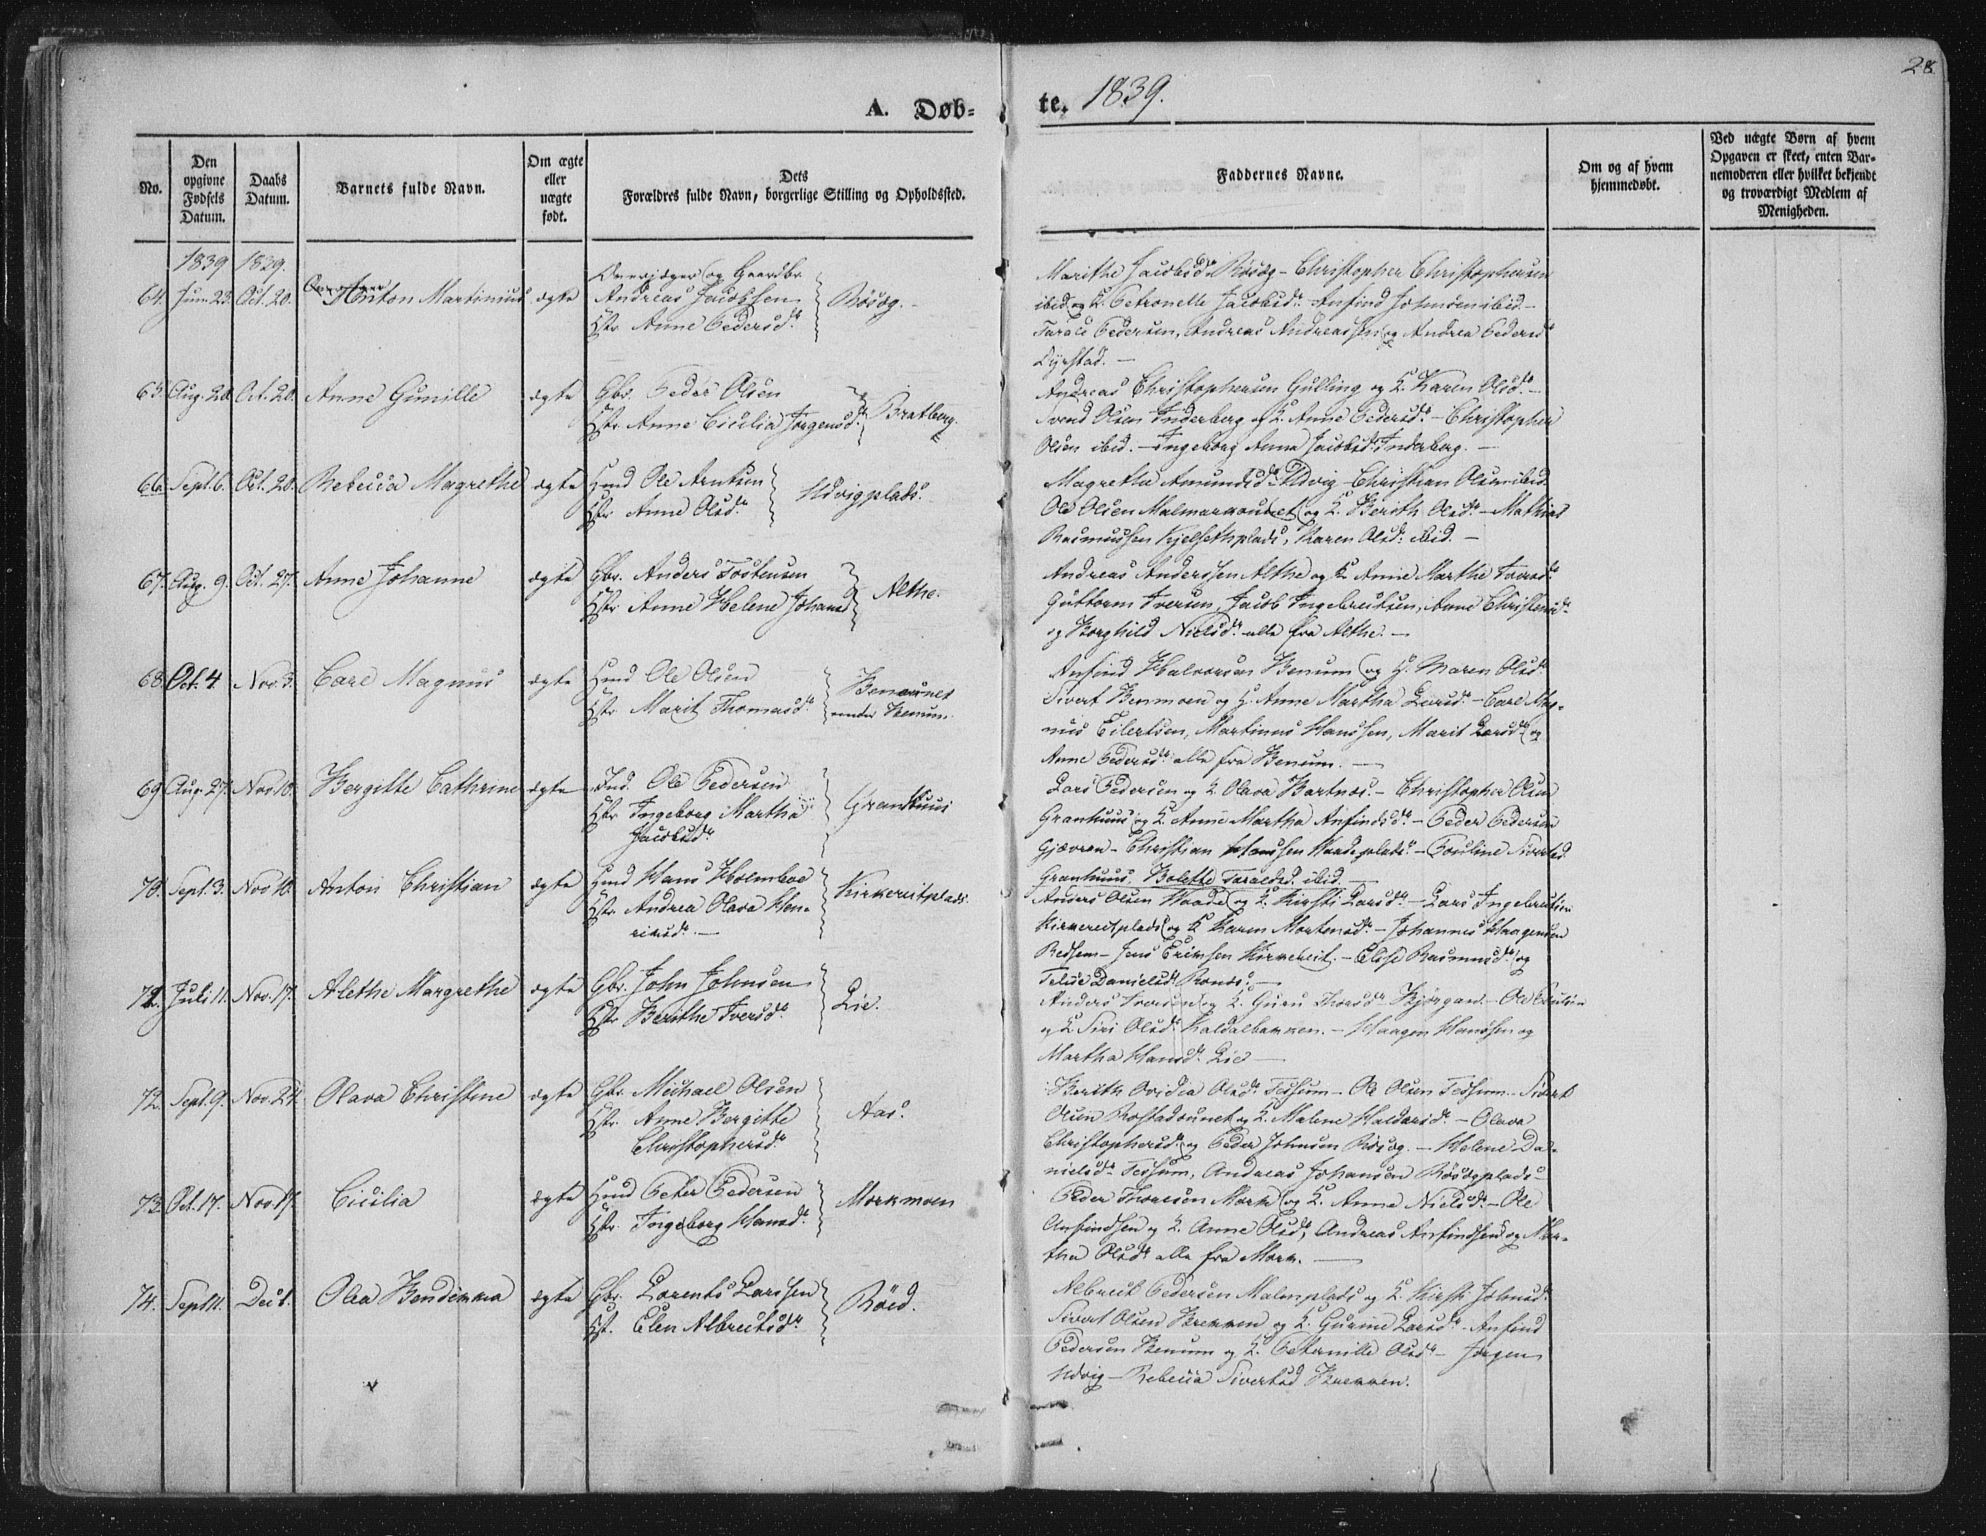 28
A. Døb-
te. 1839.
No.
Den opgivne Fødsels Datum.
Daabs Datum.
Barnets fulde Navn.
Om ægte eller uægte født.
Dets Forældres fulde Navn, borgerlige Stilling og Opholdssted.
Faddernes Navne.
Om og af hvem hjemmedøbt.
Ved uægte Børn af hvem Opgaven er skeet, enten Barnemoderen eller hvilket bekjendt og troværdigt Medlem af Menigheden.
1839 1839.
64. Juni 23. Oct. 20. Anton Martinius ægte
og Gaardbr.
Andreas Jacobsen
Anne Pedersd.
Røsøg.
Marithe Jacobsd. Røsøg - Christopher Christophersen
ibid og K. Petronelle Jacobsd. Anfind Johnsen ibid -
Pedersen, Andreas Andreassen og Andrea Pedersd.
Dyrstad. -
65. Aug. 20. Oct. 20. Anne Gunille ægte
Gbr. Peder Olsen
Hstr. Anne Cicilia Jørgensd.
Bratberg.
Andreas Christophersen Gulling og K. Karen Olsd. -
Svend Olsen Inderberg og K. Anne Pedersd. - Christopher
Olsen ibid. - Ingeborg Anna Jacobsd. Inderberg. -
66. Sept. 6. Oct. 20. Rebecca Magrethe ægte
Hmd Ole Arntsen
Hstr. Anne Olsd.
Udvigplads.
Magretha Amundsd. Udvig - Christian Olsen ibid.
Ole Olsen og K. Berith Olsd. - Mathias
Rasmussen Kjelsethplads, Karen Olsd. ibid. -
67. Aug. 9. Oct. 27. Anne Johanne ægte
Gbr. Anders Tostensen
Hstr. Anne Helene Johansd.
Althe.
Andreas Anderssen Althe og K. Anne Marthe
Guttorm Iversen, Jacob Ingebretsen, Anne Christensd.
og Borghild Nielsd. alle fra Althe. -
68. Oct. 4. Nov. 3. Carl Magnus ægte
Hmd Ole Olsen
Hstr. Marit Thomasd.
under Benum.
Anfind Halvorsen Benum og H. Maren Olsd.
Sivert Benmoen og H. Anne Martha Larsd. - Carl Mag-
nus Eilertsen, Martinus Hanssen, Marit Larsd. og
Anne Pedersd. alle fra Benum. -
69. Aug. 27. Nov. 10. Bergitte Cathrine ægte
Ind. Ole Pedersen
Hstr. Ingeborg Martha
Jacobsd.
Granhuus
Lars Pedersen og K. Olava Bartnes. - Christopher Olsen
Granhuus og K. Anne Martha Anfindsd. - Peder Pedersen
Gjævran - Christian Hanssen Haadeplads. - Pauline Sivertsd.
Granhuus. Bolette Taraldsd. ibid. -
70. Sept. 3. Nov. 10. Anton Christian ægte
Hmd Hans Holmboe
Hstr. Andrea Olava Hen-
riksd. -
Kirkereitplads.
Anders Olsen Haade og K. Kirsti Larsd. - Lars Ingebretsen
Kirkereitplads og K. Karen Mortensd. - Johannes Haagensen
Redsem - Jens Eriksen Kirkereit. - Else Rasmusd. og
Danielsd.
71. Juli 11. Nov. 17. Alethe Margrethe ægte
Gbr. John Johnsen
Hstr. Berithe Iversd.
Lie.
Anders Iversen og K. Guru Thorsd. Bjørgan. - Ole
og K. Siri Olsd. Kaldalbakken. - Haagen Hanssen og
Martha Hansd. Lie -
72. Sept. 9. Nov. 24. Olava Christine ægte
Gbr. Michael Olsen
Hstr. Anne Bergitte
Christophersd.
Aas.
Berith Ovidia Olsd. Tessum - Ole Olsen Tessum - Sivert
Olsen Rostadaunet og K. Malene Haldorsd. - Olava
Christophersd. og Peder Johnsen Røsøg. - Helene Da-
nielsd. Tessum, Andreas Johansen Røsøgplads -
73. Oct. 17. Nov. 17. Cicilia ægte
Hmd Peter Pedersen
Hstr. Ingeborg Hansd.
Morkmoen
Peder Thoresen Mork og K. Anne Nielsd. - Ole
Anfindsen og K. Anne Olsd, Andreas Anfindsen og Mar-
tha Olsd. alle fra Mork. -
74. Sept. 11. Dec 1. Olea Bendikka ægte
Gbr. Lorents Larssen
Hst. Elen Albrectsd.
Røed.
Albrect Pedersen Malmplads og K. Kirsti Johnsd.
Sivert Olsen Brekken og K. Gurine Larsd. - Anfind
Pedersen Benum og K. Peternille Olsd. - Jørgen
Udvig - Rebecca Sivertsd Brekken.